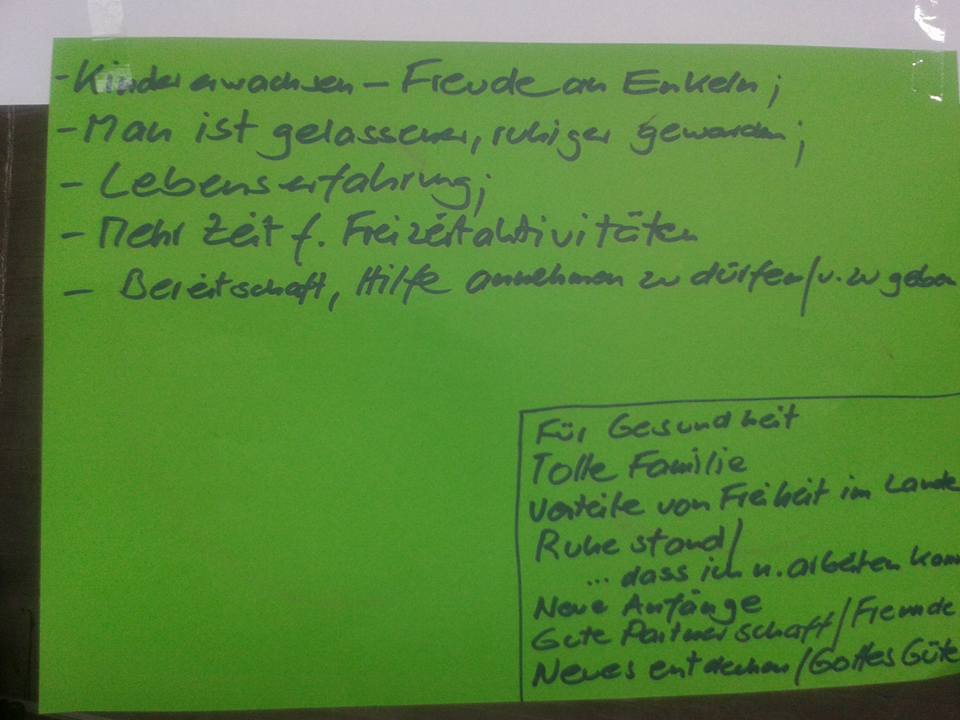 - Kinder erwachsen – Freude an Enkeln;
- Man ist gelassener, ruhiger geworden;
- Lebenserfahrung;
- Mehr Zeit f. Freizeitaktivitäten
- Bereitschaft, Hilfe annehmen zu dürfen/u. zu geben
Für Gesundheit
Tolle Familie
Vorteile von Freiheit im Lande
Ruhestand/
... dass ich n. arbeiten kann
Neue Anfänge
Gute Partnerschaft/Freunde
Neues entdecken/Gottes Güte